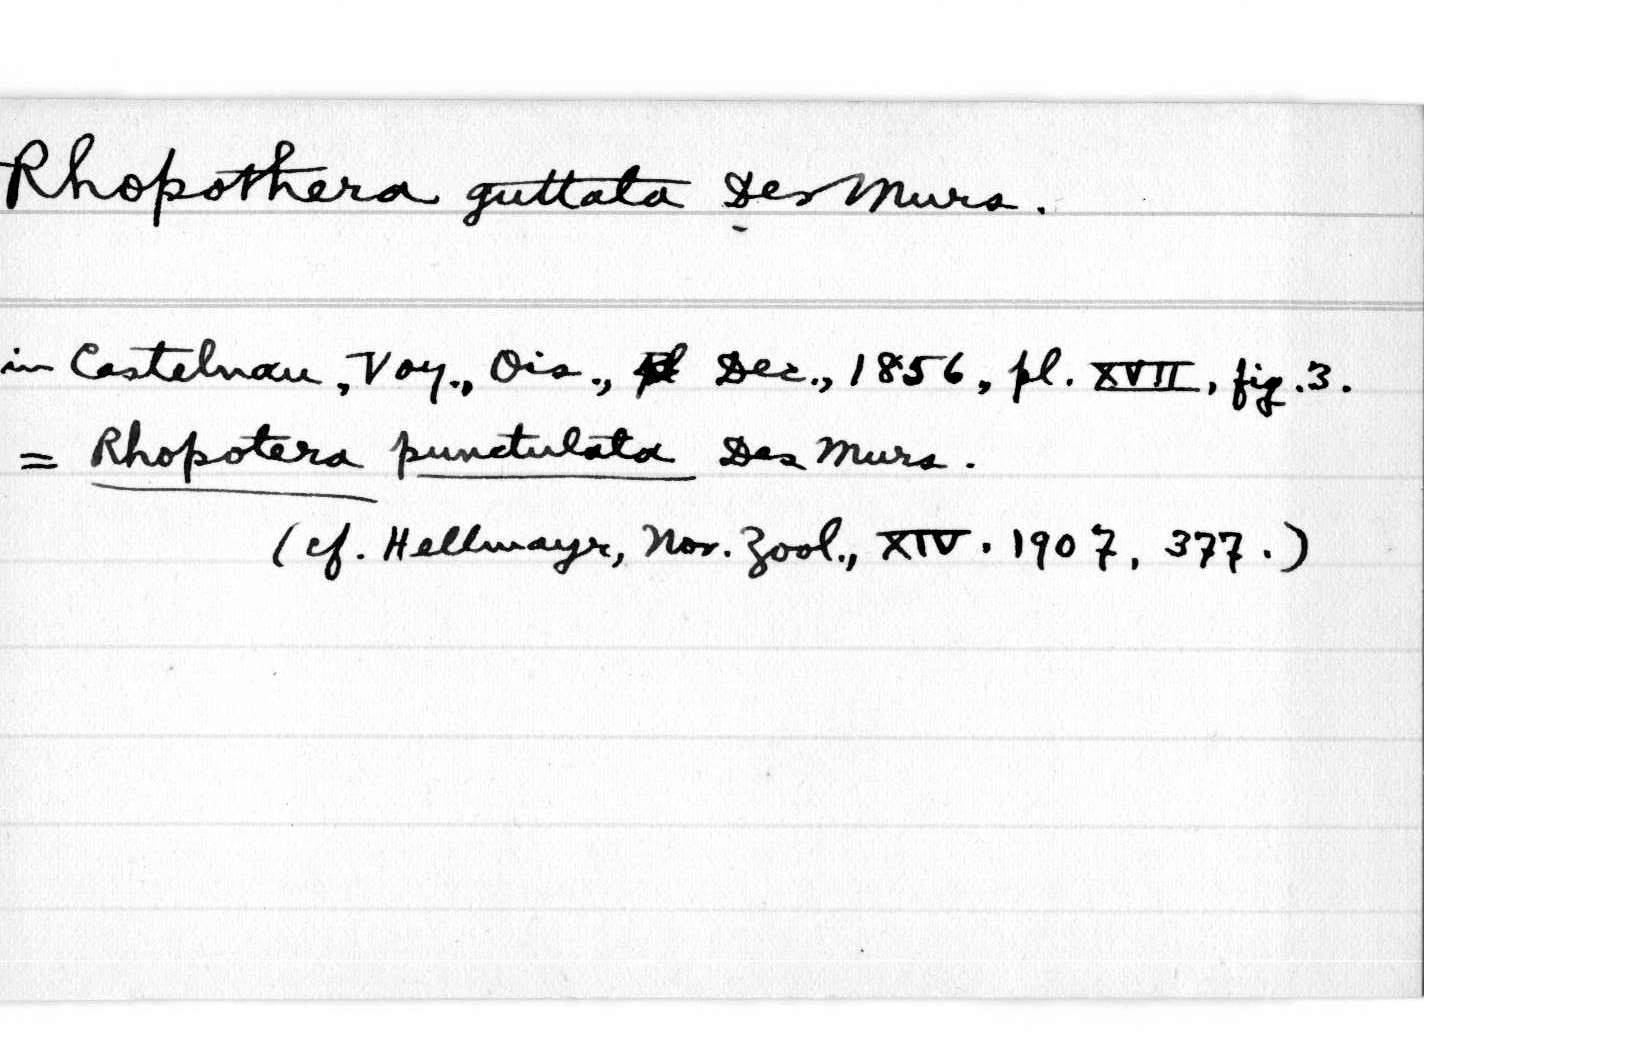 Rhopothera guttata Des Murs.
in Castelnau, Voy., Ois., Dec., 1856, pl. XVII, fig. 3.
= Rhopotera punctulata Des Murs.
(cf. Hellmayr, Nov. Zool., XIV. 1907, 377.)